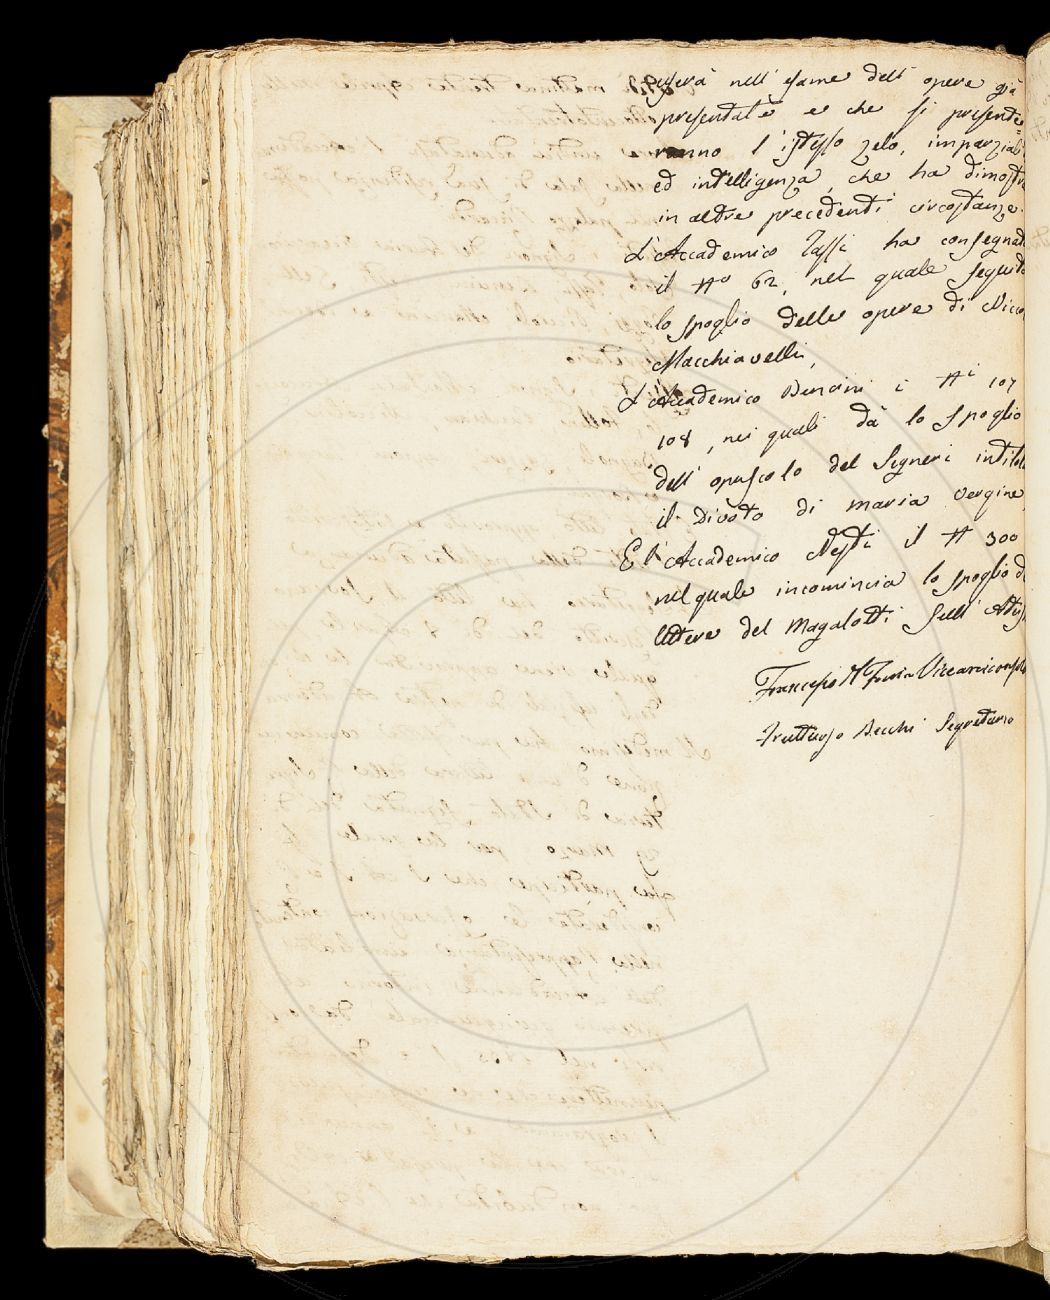 userà nell' esame dell' opere già
presentate e che si presente=
ranno l'istesso zelo, imparziali
ed intelligenza, che ha dimostra
in altre precedenti circostanze.
L'Accademico Tassi ha consegnato
il N° 62, nel quale seguita
lo spoglio delle opere di Nicco
Macchiavelli,
L'Accademico Bencini i Ni 107
108, nei quali dà lo spoglio
dell' opuscolo del Segneri intitol
il Divoto di Maria Vergine
E l'Accademico Nesti il N 300
nel quale incomincia lo spoglio d
lettere del Magalotti sull' Ateis
Francesco Del Furia Vicearciconsolo
Fruttuoso Becchi Segretario